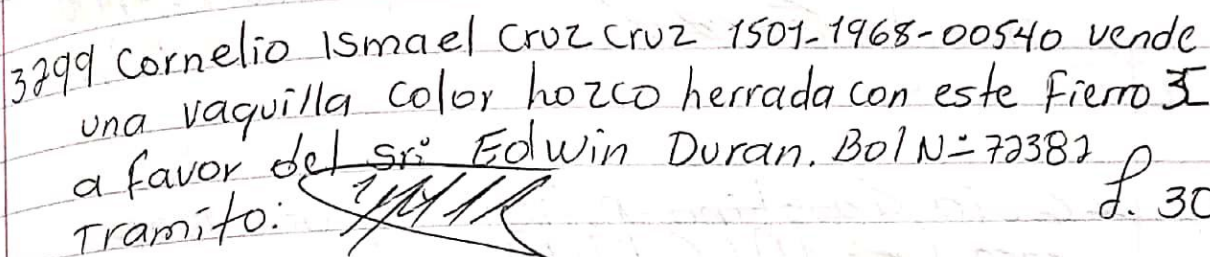 3299 Cornelio Ismael Cruz Cruz 1501-1968-00540 vende
una vaquilla color hozco herrada con este Fierro
a favor del Sr: Edwin Duran. Bol Nº 72382
Tramito:
30